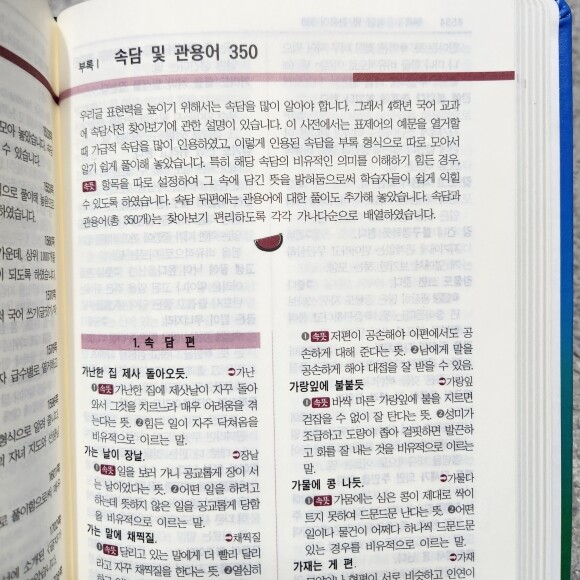 부록 Ⅰ 속담 및 관용어 350
우리글 표현력을 높이기 위해서는 속담을 많이 알아야 합니다. 그래서 4학년 국어 교과
에 속담사전 찾아보기에 관한 설명이 있습니다. 이 사전에서는 표제어의 예문을 열거할
때 가급적 속담을 많이 인용하였고, 이렇게 인용된 속담을 부록 형식으로 따로 모아서
알기 쉽게 풀이해 놓았습니다. 특히 해당 속담의 비유적인 의미를 이해하기 힘든 경우,
속뜻 항목을 따로 설정하여 그 속에 담긴 뜻을 밝혀둠으로써 학습자들이 쉽게 익힐
수 있도록 하였습니다. 속담 뒤편에는 관용어에 대한 풀이도 추가해 놓았습니다. 속담과
관용어(총 350개)는 찾아보기 편리하도록 각각 가나다순으로 배열하였습니다.
1. 속 담 편
가난한 집 제사 돌아오듯. ⇨가난
❶속뜻 가난한 집에 제삿날이 자꾸 돌아
와서 그것을 치르느라 매우 어려움을 겪
는다는 뜻. ❷힘든 일이 자주 닥쳐옴을
비유적으로 이르는 말.
가는 날이 장날. ⇨장날
❶속뜻 일을 보러 가니 공교롭게 장이 서
는 날이었다는 뜻. ❷어떤 일을 하려고
하는데 뜻하지 않은 일을 공교롭게 당함
을 비유적으로 이르는 말.
가는 말에 채찍질. ⇨채찍질
❶속뜻 달리고 있는 말에게 더 빨리 달리
라고 자꾸 채찍질을 한다는 뜻. ❷열심히
❶속뜻 저편이 공손해야 이편에서도 공
손하게 대해 준다는 뜻. ❷남에게 말을
공손하게 해야 대접을 잘 받을 수 있음.
가랑잎에 불붙듯 ⇨가랑잎
❶속뜻 바싹 마른 가랑잎에 불을 지르면
걷잡을 수 없이 잘 탄다는 뜻. ❷성미가
조급하고 도량이 좁아 걸핏하면 발끈하
고 화를 잘 내는 것을 비유적으로 이르는
말.
가물에 콩 나듯. ⇨가물다
❶속뜻 가뭄에는 심은 콩이 제대로 싹이
트지 못하여 드문드문 난다는 뜻. ❷어떤
일이나 물건이 어쩌다 하나씩 드문드문
있는 경우를 비유적으로 이르는 말.
가재는 게 편. ⇨가재